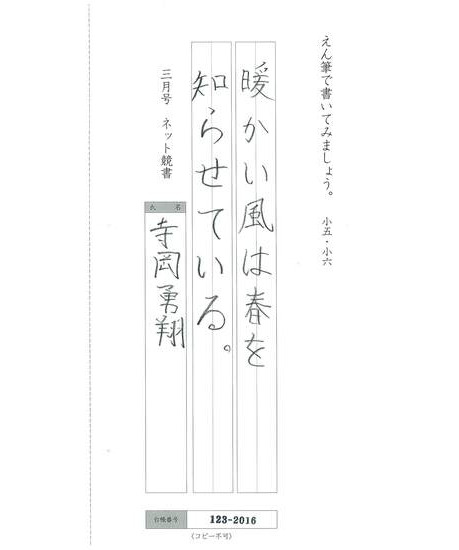 えん筆で書いてみましょう。 小五・小六
暖かい風は春を
知らせている。
三月号 ネット競書
氏名
寺岡勇翔
台帳番号 123-2016
(コピー不可)